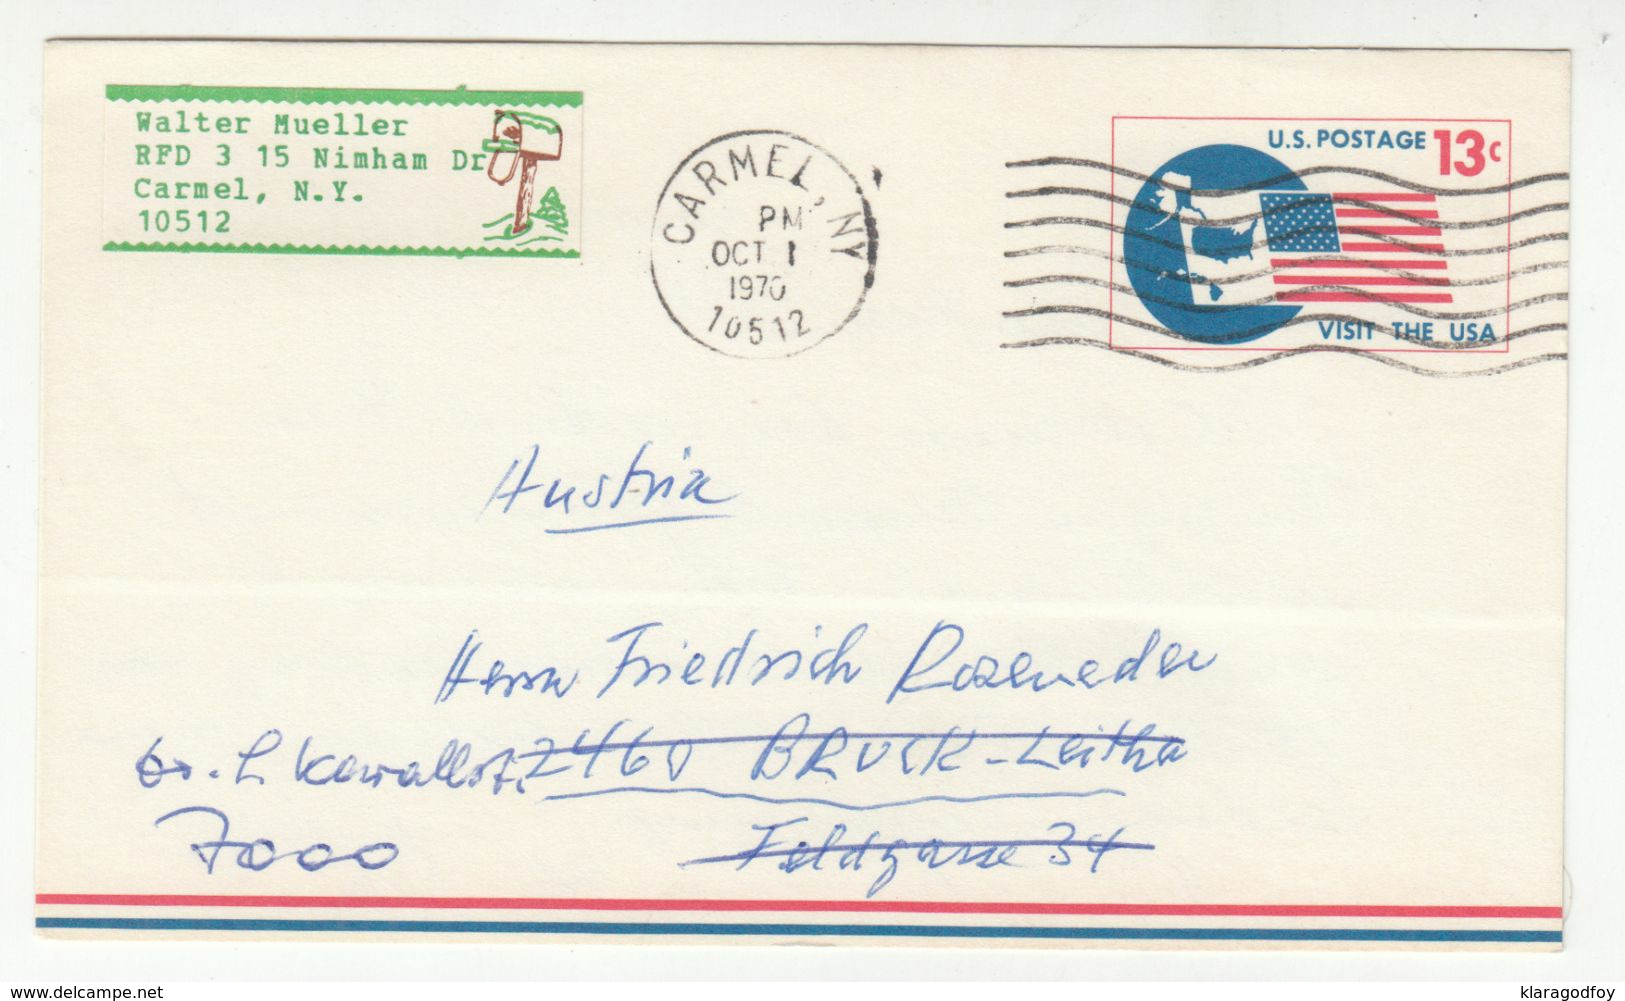 Walter Mueller
RFD 3 15 Nimham Dr
Carmel, N.Y.
10512
CARMEL, NY
PM
OCT 1
1970
10512
U.S. POSTAGE 13c
VISIT THE USA
Austria
Herrn Friedrich Roseneder
2460 BRUCK-Leitha
7000
Feldgasse 34
www.delcampe.net
klaragodfoy